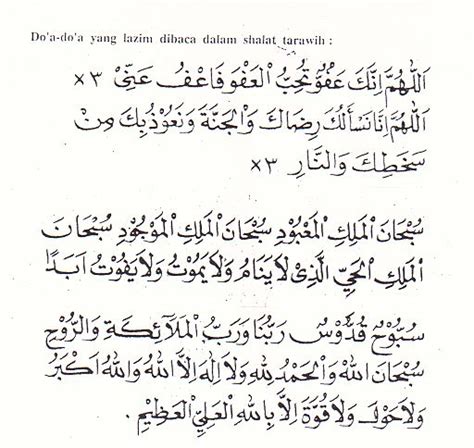 Do'a-do'a yang lazim dibaca dalam shalat tarawih :
اَللّٰهُمَّ اِنَّكَ عَفُوٌّ تُحِبُّ الْعَفْوَ فَاعْفُ عَنِّيْ ×٣
اَللّٰهُمَّ اِنَّا نَسْأَلُكَ رِضَاكَ وَالْجَنَّةَ وَنَعُوْذُ بِكَ مِنْ
سَخَطِكَ وَالنَّارِ ×٣
سُبْحَانَ الْمَلِكِ الْمَعْبُوْدِ سُبْحَانَ الْمَلِكِ الْمَوْجُوْدِ سُبْحَانَ
الْمَلِكِ الْحَيِّ الَّذِيْ لَا يَنَامُ وَلَا يَمُوْتُ وَلَا يَفُوْتُ اَبَدًا
سُبُّوْحٌ قُدُّوْسٌ رَبُّنَا وَرَبُّ الْمَلَآئِكَةِ وَالرُّوْحِ
سُبْحَانَ اللهِ وَالْحَمْدُ لِلهِ وَلَا اِلٰهَ اِلَّا اللهُ وَاللهُ اَكْبَرُ
وَلَا حَوْلَ وَلَا قُوَّةَ اِلَّا بِاللهِ الْعَلِيِّ الْعَظِيْمِ .